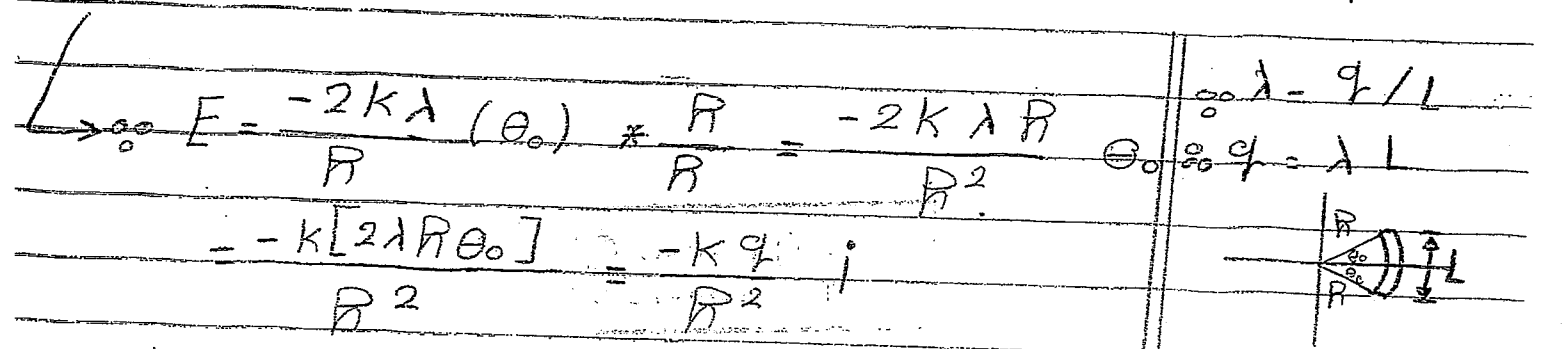 → ∴ E = -2Kλ / R (θ₀) * R / R = -2KλR / R² θ₀
= -K[2λRθ₀] / R² = -Kq / R² i
∵ λ = q / L
∴ q = λ L
R
θ₀
θ₀
R
L